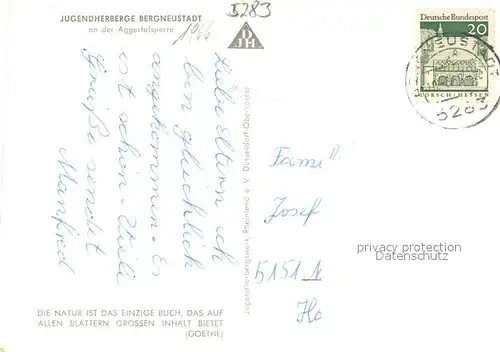 JUGENDHERBERGE BERGNEUSTADT
an der Aggertalsperre
5283
1966
DJH
Deutsche Bundespost
20
LORSCH-HESSEN
BERGNEUSTADT
5283
Liebe Eltern ich
bin glücklich
angekommen. Es
ist schön. Viele
Grüße sendet
Manfred
Jugendherbergswerk Rheinland e V Düsseldorf-Oberkassel
Famil
Josef
5151 N
Ho
privacy protection
Datenschutz
DIE NATUR IST DAS EINZIGE BUCH, DAS AUF
ALLEN BLATTERN GROSSEN INHALT BIETET
(GOETHE)